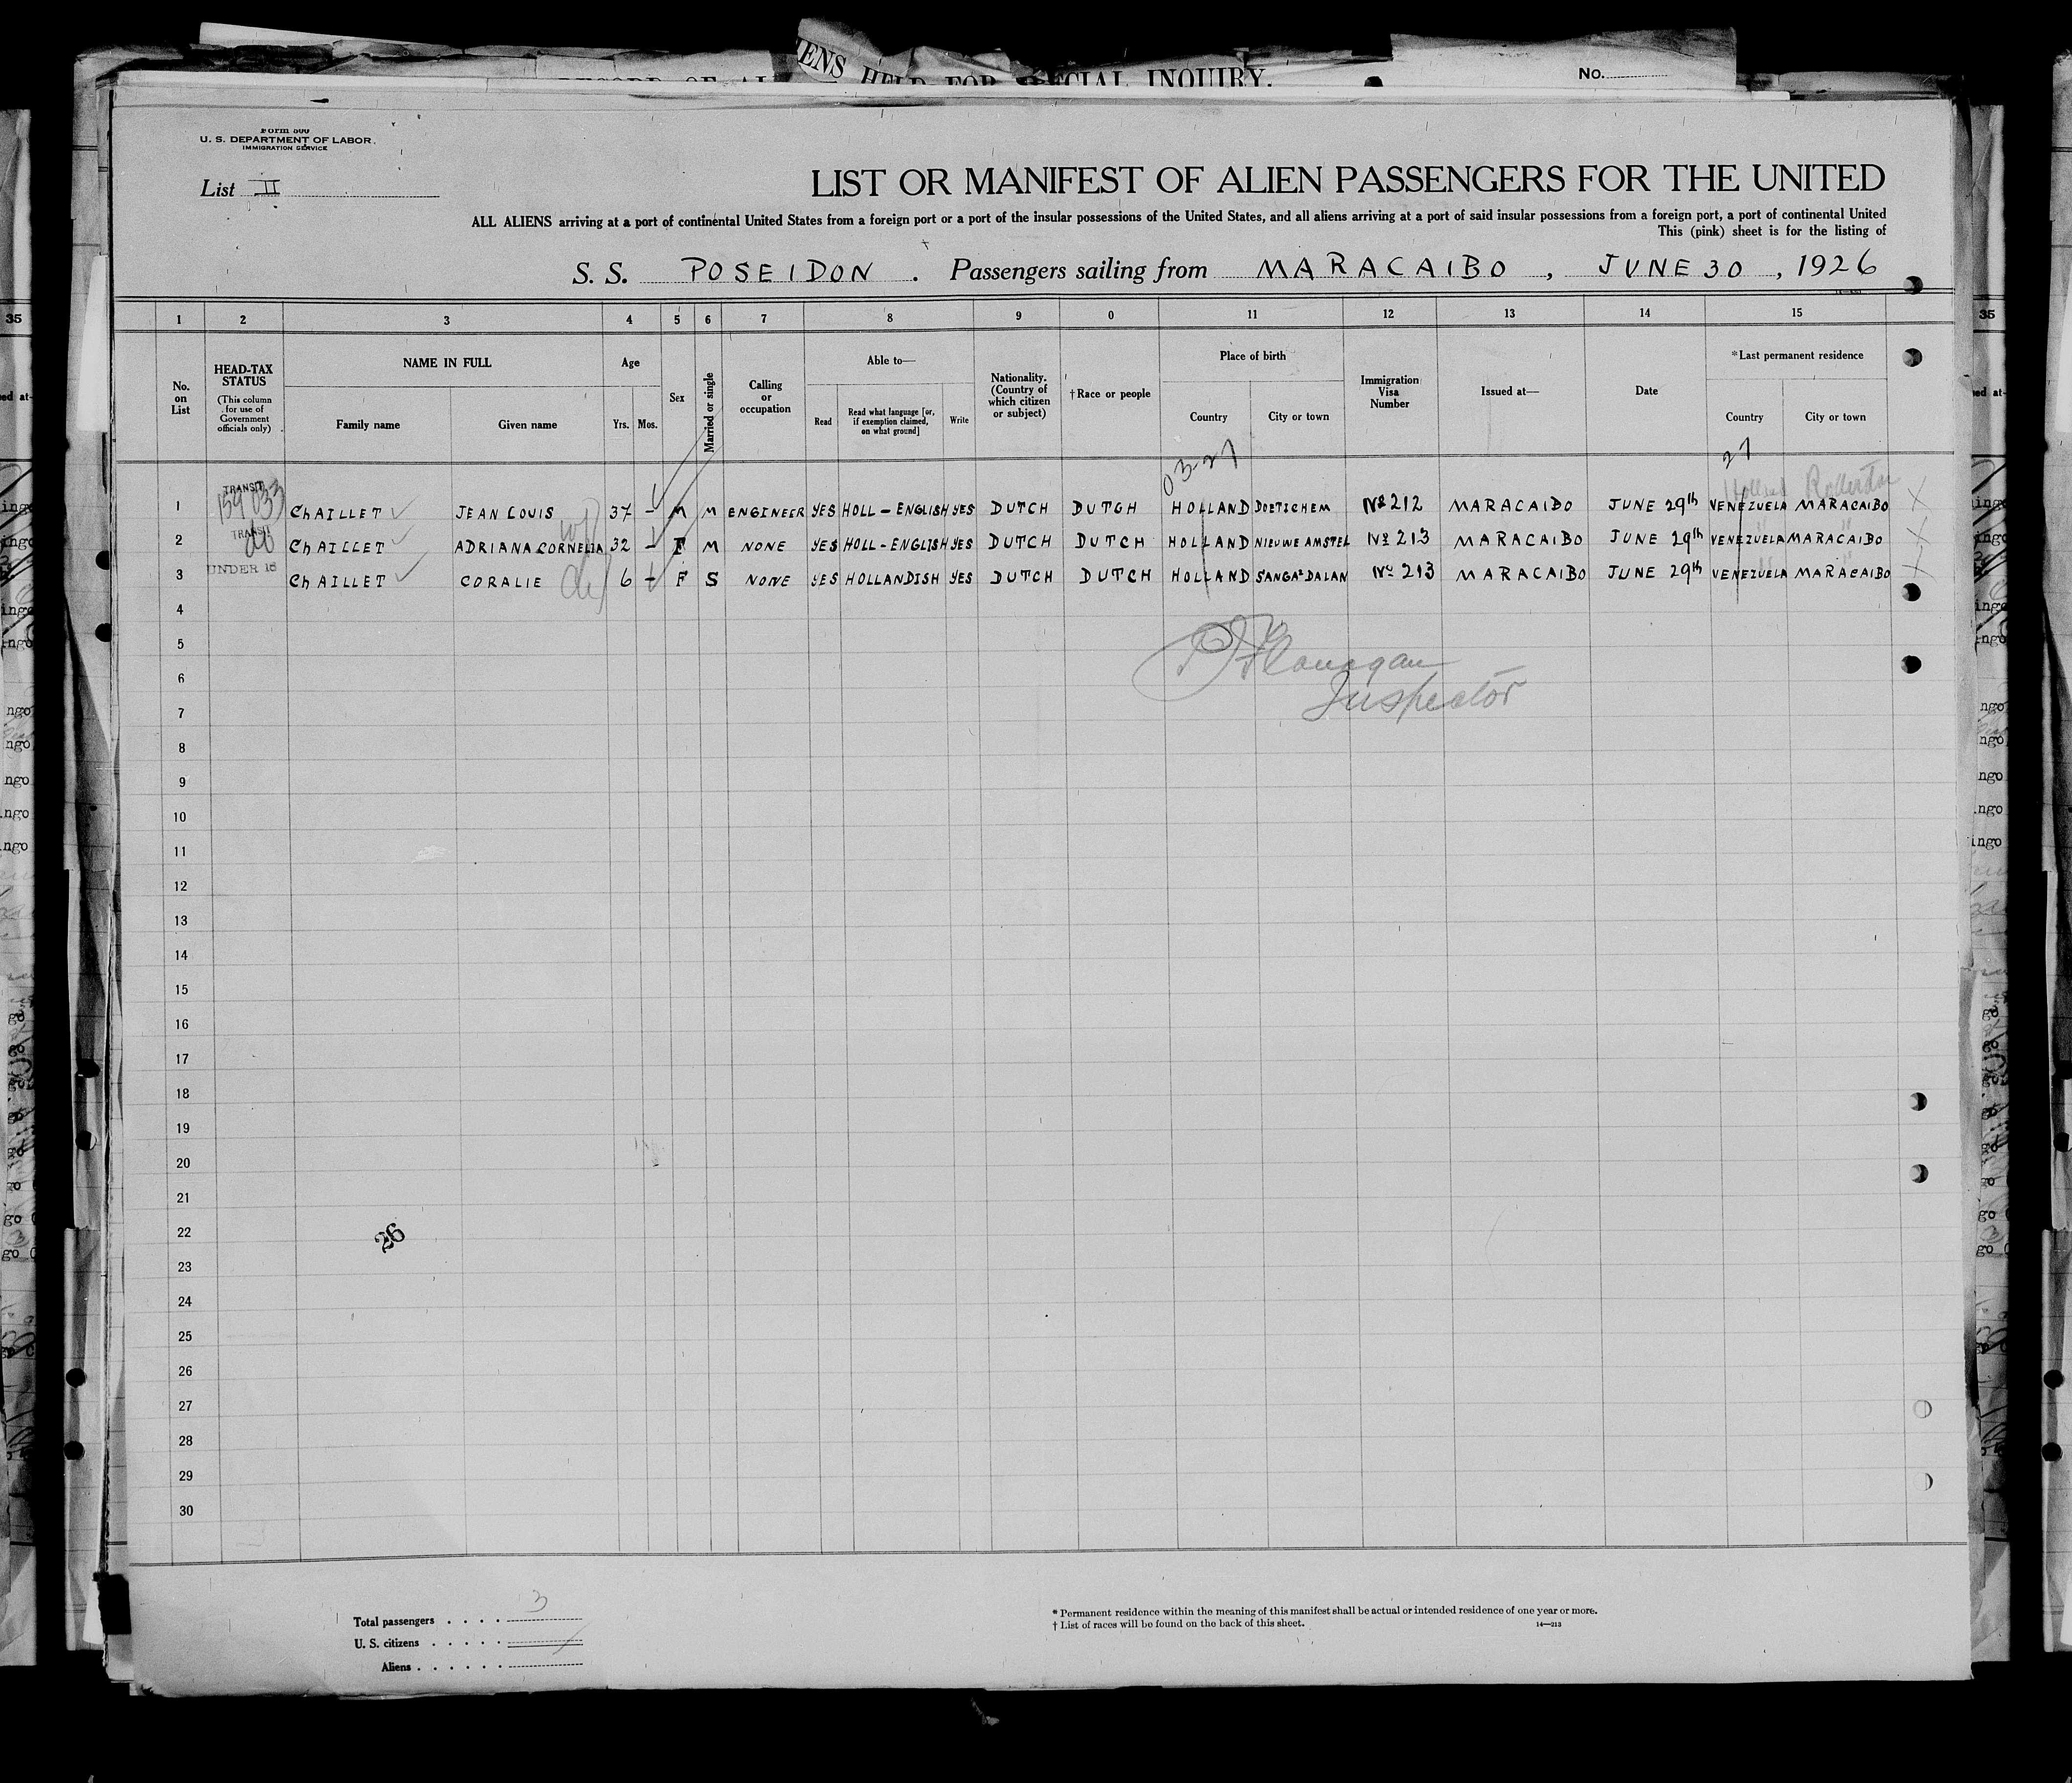 ENS HELD FOR SPECIAL INQUIRY.
No.
Form 500
U. S. DEPARTMENT OF LABOR
IMMIGRATION SERVICE
List II
LIST OR MANIFEST OF ALIEN PASSENGERS FOR THE UNITED
ALL ALIENS arriving at a port of continental United States from a foreign port or a port of the insular possessions of the United States, and all aliens arriving at a port of said insular possessions from a foreign port, a port of continental United
This (pink) sheet is for the listing of
S. S. POSEIDON . Passengers sailing from MARACAIBO , JUNE 30 , 1926
1 2 3 4 5 6 7 8 9 0 11 12 13 14 15
No. on List
HEAD-TAX STATUS (This column for use of Government officials only)
NAME IN FULL
Family name Given name
Age
Yrs. Mos.
Sex
Married or single
Calling or occupation
Able to—
Read Read what language [or, if exemption claimed, on what ground] Write
Nationality. (Country of which citizen or subject)
†Race or people
Place of birth
Country City or town
Immigration Visa Number
Issued at—
Date
*Last permanent residence
Country City or town
03-27 27
TRANSIT Holland Rotterdam
1 ChAILLET JEAN LOUIS 37 - M M ENGINEER YES HOLL - ENGLISH YES DUTCH DUTCH HOLLAND DOETICHEM Nº 212 MARACAIBO JUNE 29th VENEZUELA MARACAIBO
TRANSIT
2 ChAILLET ADRIANA CORNELIA 32 - F M NONE YES HOLL - ENGLISH YES DUTCH DUTCH HOLLAND NIEUWE AMSTEL Nº 213 MARACAIBO JUNE 29th VENEZUELA MARACAIBO
UNDER 16
3 ChAILLET CORALIE 6 - F S NONE YES HOLLANDISH YES DUTCH DUTCH HOLLAND SANGA²DALAN Nº 213 MARACAIBO JUNE 29th VENEZUELA MARACAIBO
4
5
Flanagan
6
Inspector
7
8
9
10
11
12
13
14
15
16
17
18
19
20
21
22 26
23
24
25
26
27
28
29
30
Total passengers . . . . 3
U. S. citizens . . . . .
Aliens . . . . . .
* Permanent residence within the meaning of this manifest shall be actual or intended residence of one year or more.
† List of races will be found on the back of this sheet. 14—213